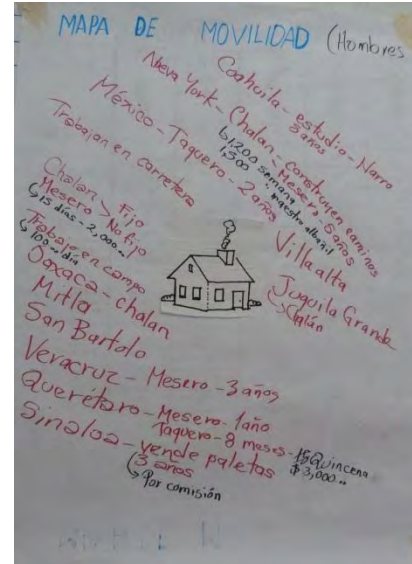 MAPA DE MOVILIDAD (Hombres
Coahuila - estudio - Narro
3 años
Nueva York - Chalan - construyen caminos
Mesero - 5 años
↳ 1,200 semana
1,500 " maestro albañil
México - Taquero - 2 años
Trabajan en carretera
Villa alta
Juquila Grande
↳ Chalán
Chalan > Fijo
Mesero > No fijo
↳ 15 días - 2,000..
Trabaje en campo
↳ 100 - día
Oaxaca - chalan
Mitla
San Bartolo
Veracruz - Mesero - 3 años
Querétaro - Mesero - 1 año
Taquero - 8 meses - Quincena
$3,000..
Sinaloa - vende paletas
3 años
↳ Por comisión